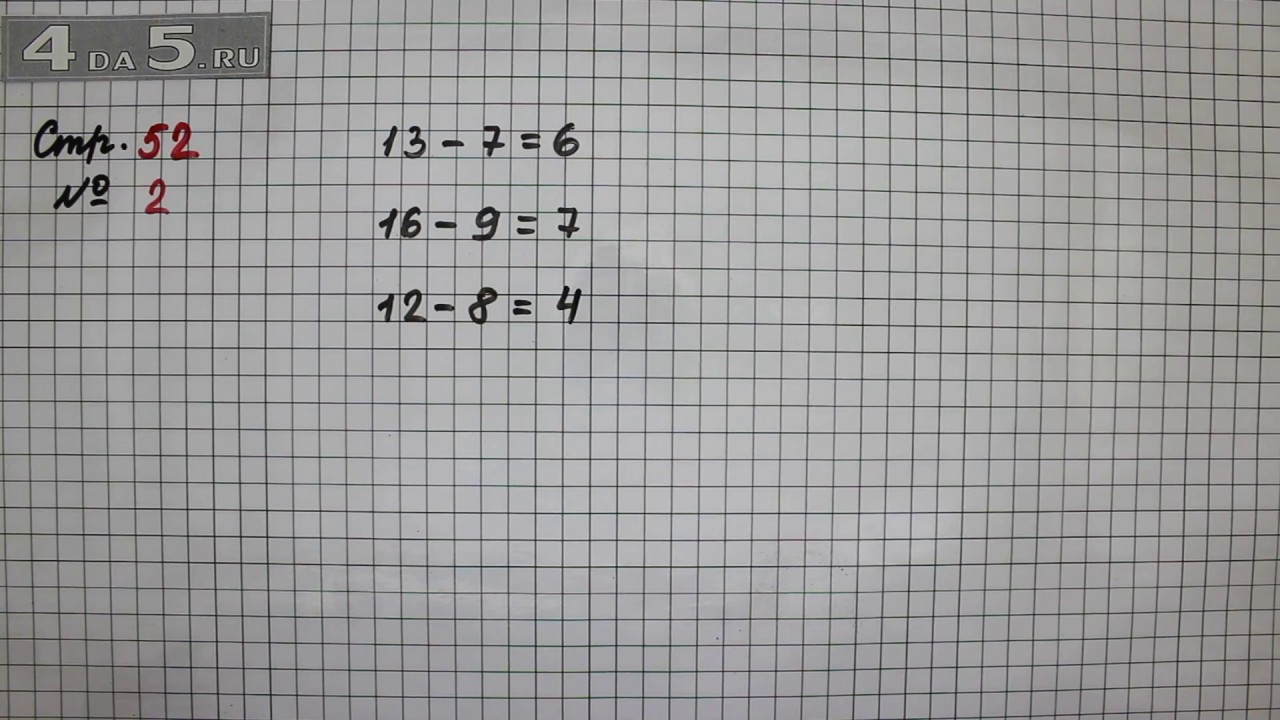 4 DA 5.RU
Стр. 52
№ 2
13 - 7 = 6
16 - 9 = 7
12 - 8 = 4